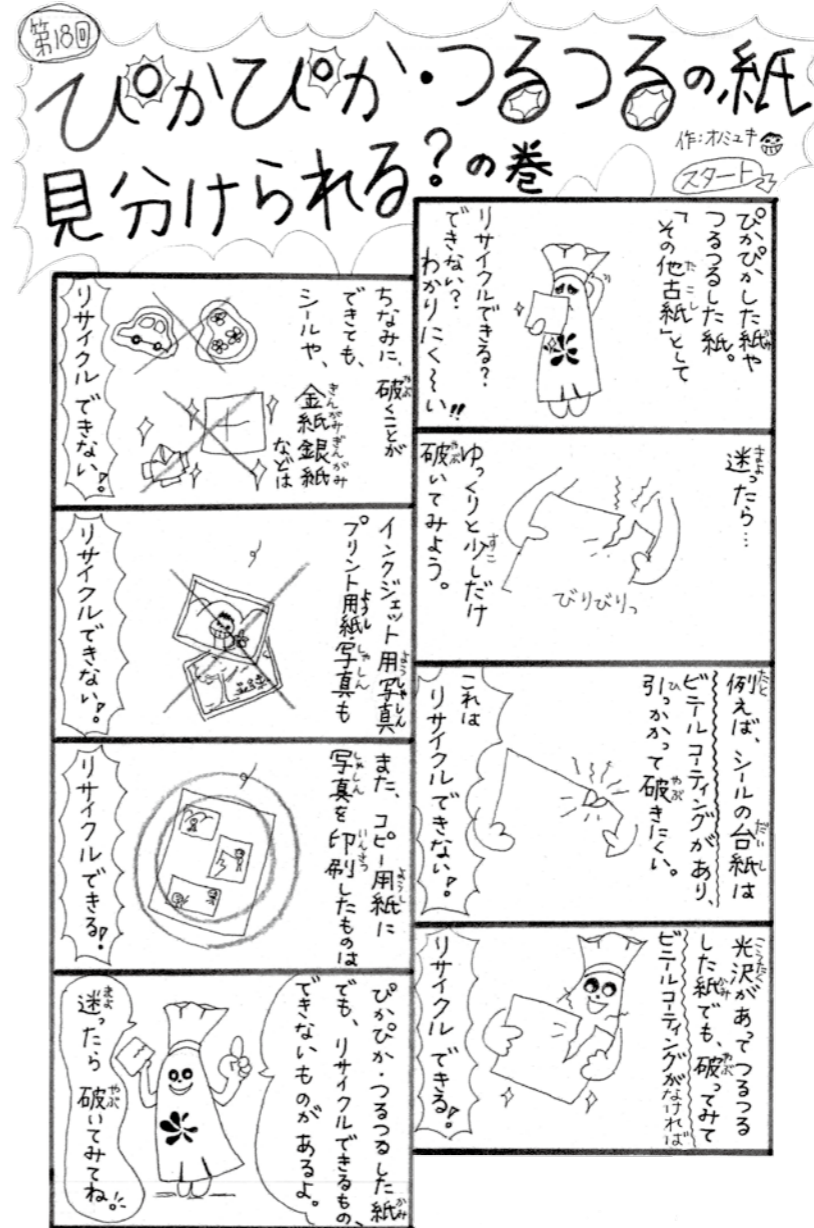 第18回
ぴかぴか・つるつるの紙
見分けられる?の巻
作:オノミユキ
スタート
ぴかぴかした紙や
つるつるした紙。
「その他古紙」として
リサイクルできる?
できない?
わかりにく〜い!!
迷ったら…
ゆっくりと少しだけ
破いてみよう。
びりびりっ
例えば、シールの台紙は
ビニールコーティングがあり、
引っかかって破きにくい。
これは
リサイクルできない!
光沢があってつるつる
した紙でも、破ってみて
ビニールコーティングがなければ
リサイクルできる!
ちなみに、破くことが
できても、
シールや、
金紙銀紙
などは
リサイクルできない!
インクジェット用写真
プリント用紙・写真も
リサイクルできない!
また、コピー用紙に
写真を印刷したものは
リサイクルできる!
ぴかぴか・つるつるした紙
でも、リサイクルできるもの、
できないものがあるよ。
迷ったら破いてみてね!